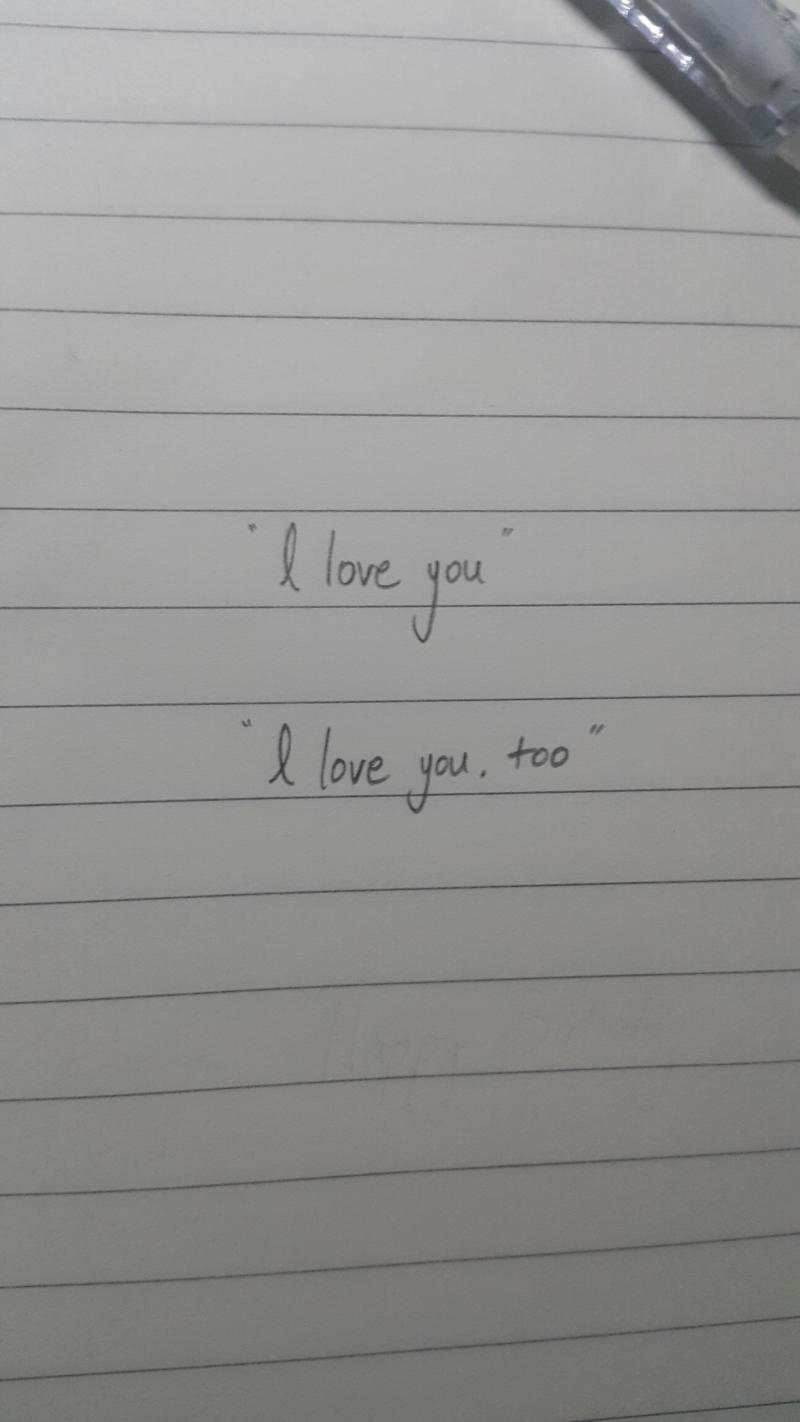 "I love you"
"I love you, too"
Happy